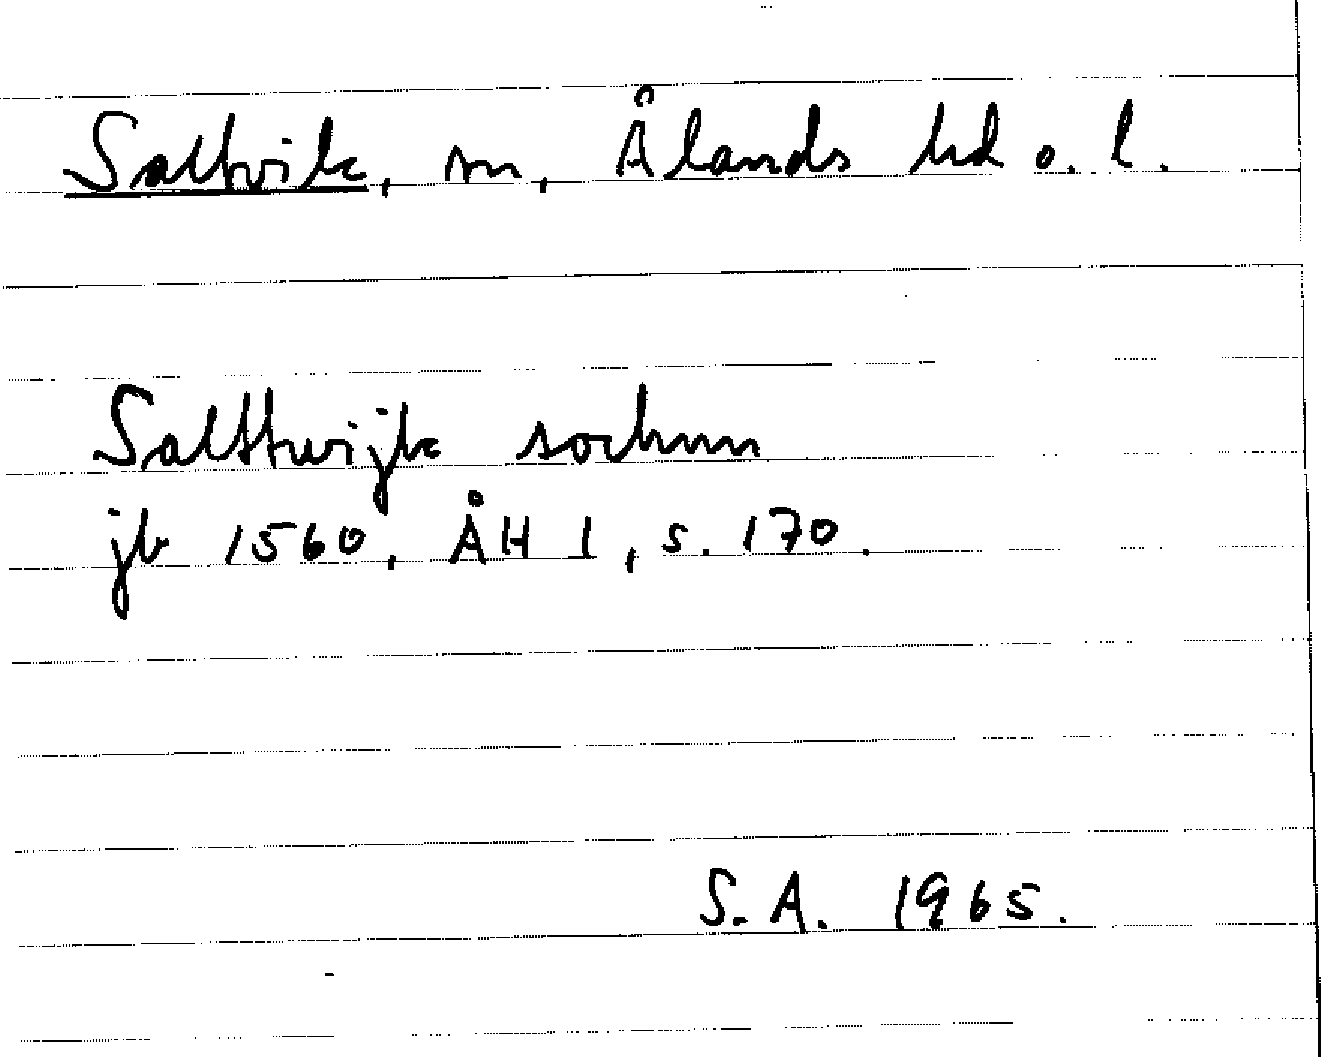 Saltvik, sn, Ålands hd o. l.
Salttwijk sochnn
jb 1560, ÅH I, s. 170.
S. A. 1965.